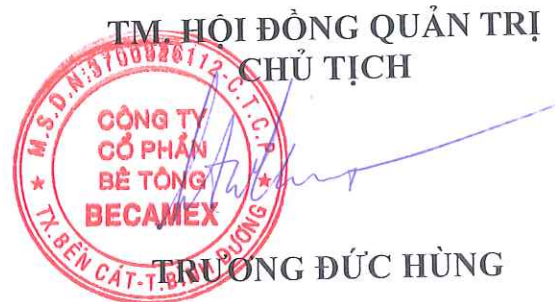 TM. HỘI ĐỒNG QUẢN TRỊ
CHỦ TỊCH
M.S.D.N:3700926112-C.T.C.P
CÔNG TY
CỔ PHẦN
BÊ TÔNG
BECAMEX
TX.BẾN CÁT-T.BÌNH DƯƠNG
TRƯƠNG ĐỨC HÙNG